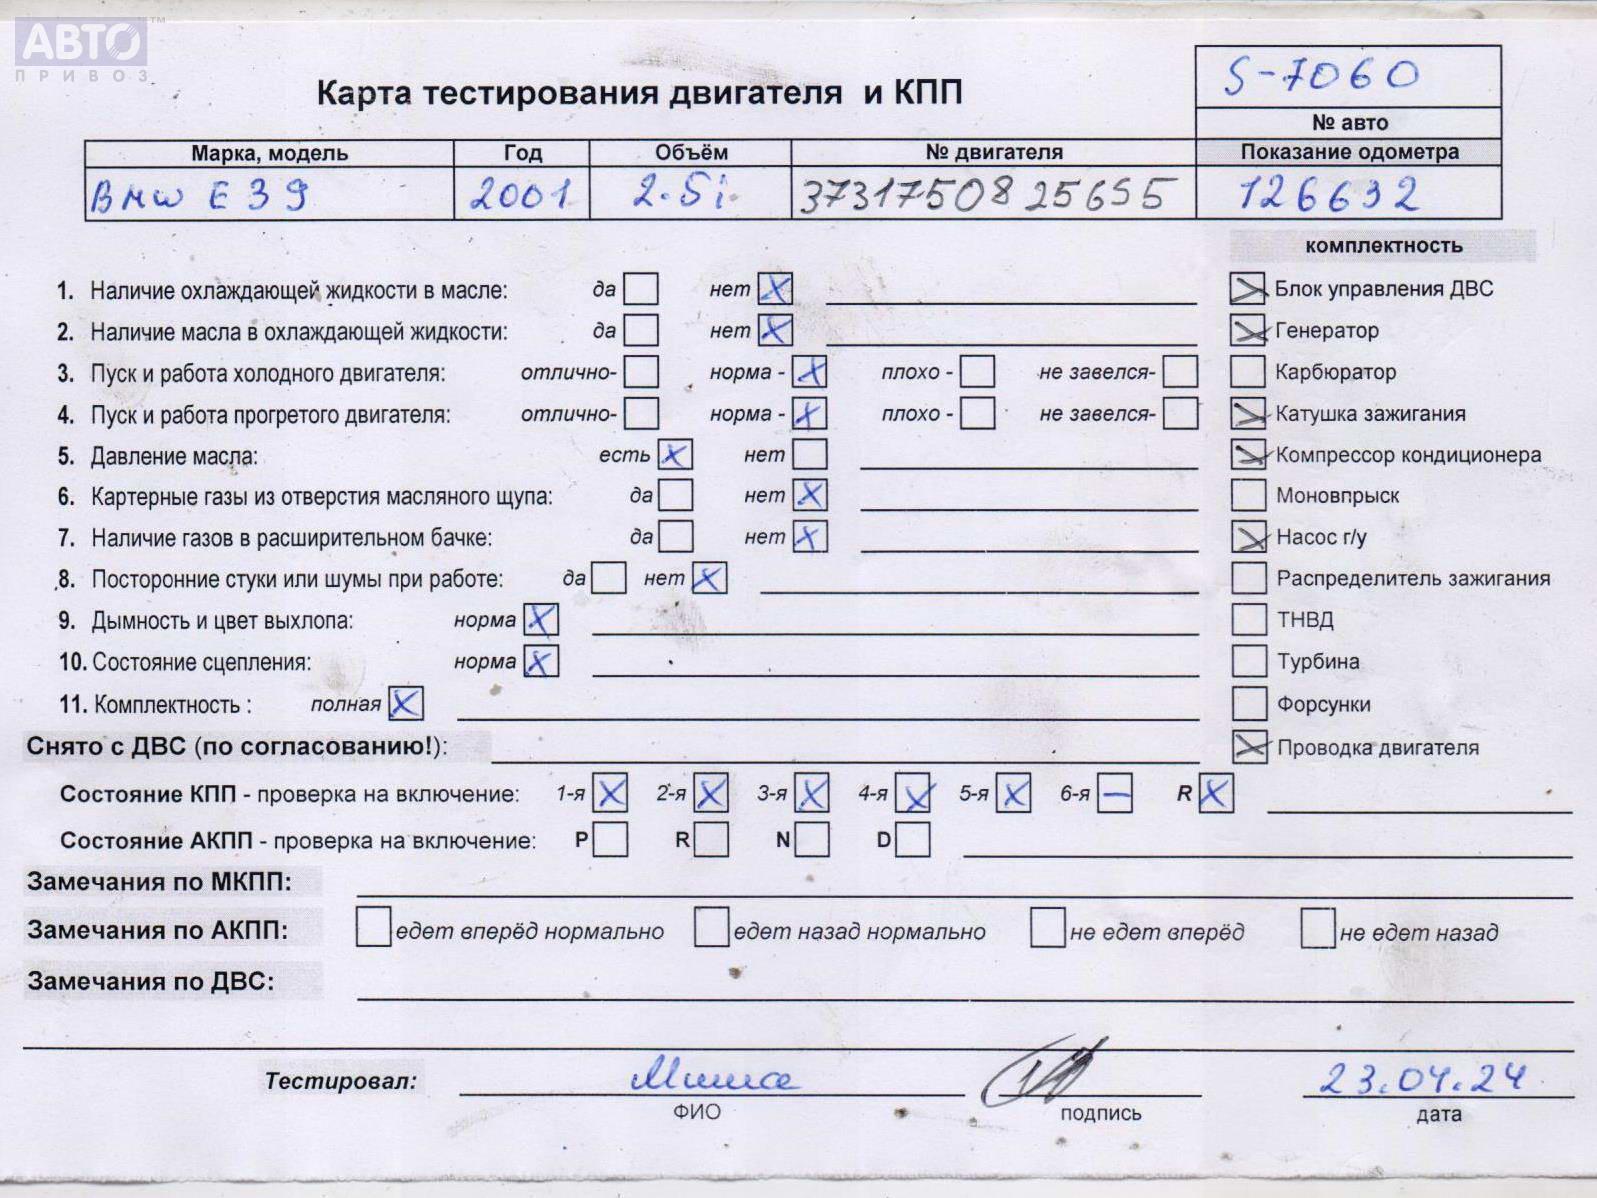 АВТО™
ПРИВОЗ
S-7060
Карта тестирования двигателя и КПП
№ авто
Марка, модель Год Объём № двигателя Показание одометра
BMW E39 2001 2.5i 3731750825655 126632
комплектность
1. Наличие охлаждающей жидкости в масле: да нет X Блок управления ДВС
2. Наличие масла в охлаждающей жидкости: да нет X Генератор
3. Пуск и работа холодного двигателя: отлично- норма - X плохо - не завелся- Карбюратор
4. Пуск и работа прогретого двигателя: отлично- норма - X плохо - не завелся- Катушка зажигания
5. Давление масла: есть X нет Компрессор кондиционера
6. Картерные газы из отверстия масляного щупа: да нет X Моновпрыск
7. Наличие газов в расширительном бачке: да нет X Насос г/у
8. Посторонние стуки или шумы при работе: да нет X Распределитель зажигания
9. Дымность и цвет выхлопа: норма X ТНВД
10. Состояние сцепления: норма X Турбина
11. Комплектность : полная X Форсунки
Снято с ДВС (по согласованию!): Проводка двигателя
Состояние КПП - проверка на включение: 1-я X 2-я X 3-я X 4-я X 5-я X 6-я – R X
Состояние АКПП - проверка на включение: P R N D
Замечания по МКПП:
Замечания по АКПП: едет вперёд нормально едет назад нормально не едет вперёд не едет назад
Замечания по ДВС:
Тестировал: Миша 23.04.24
ФИО подпись дата